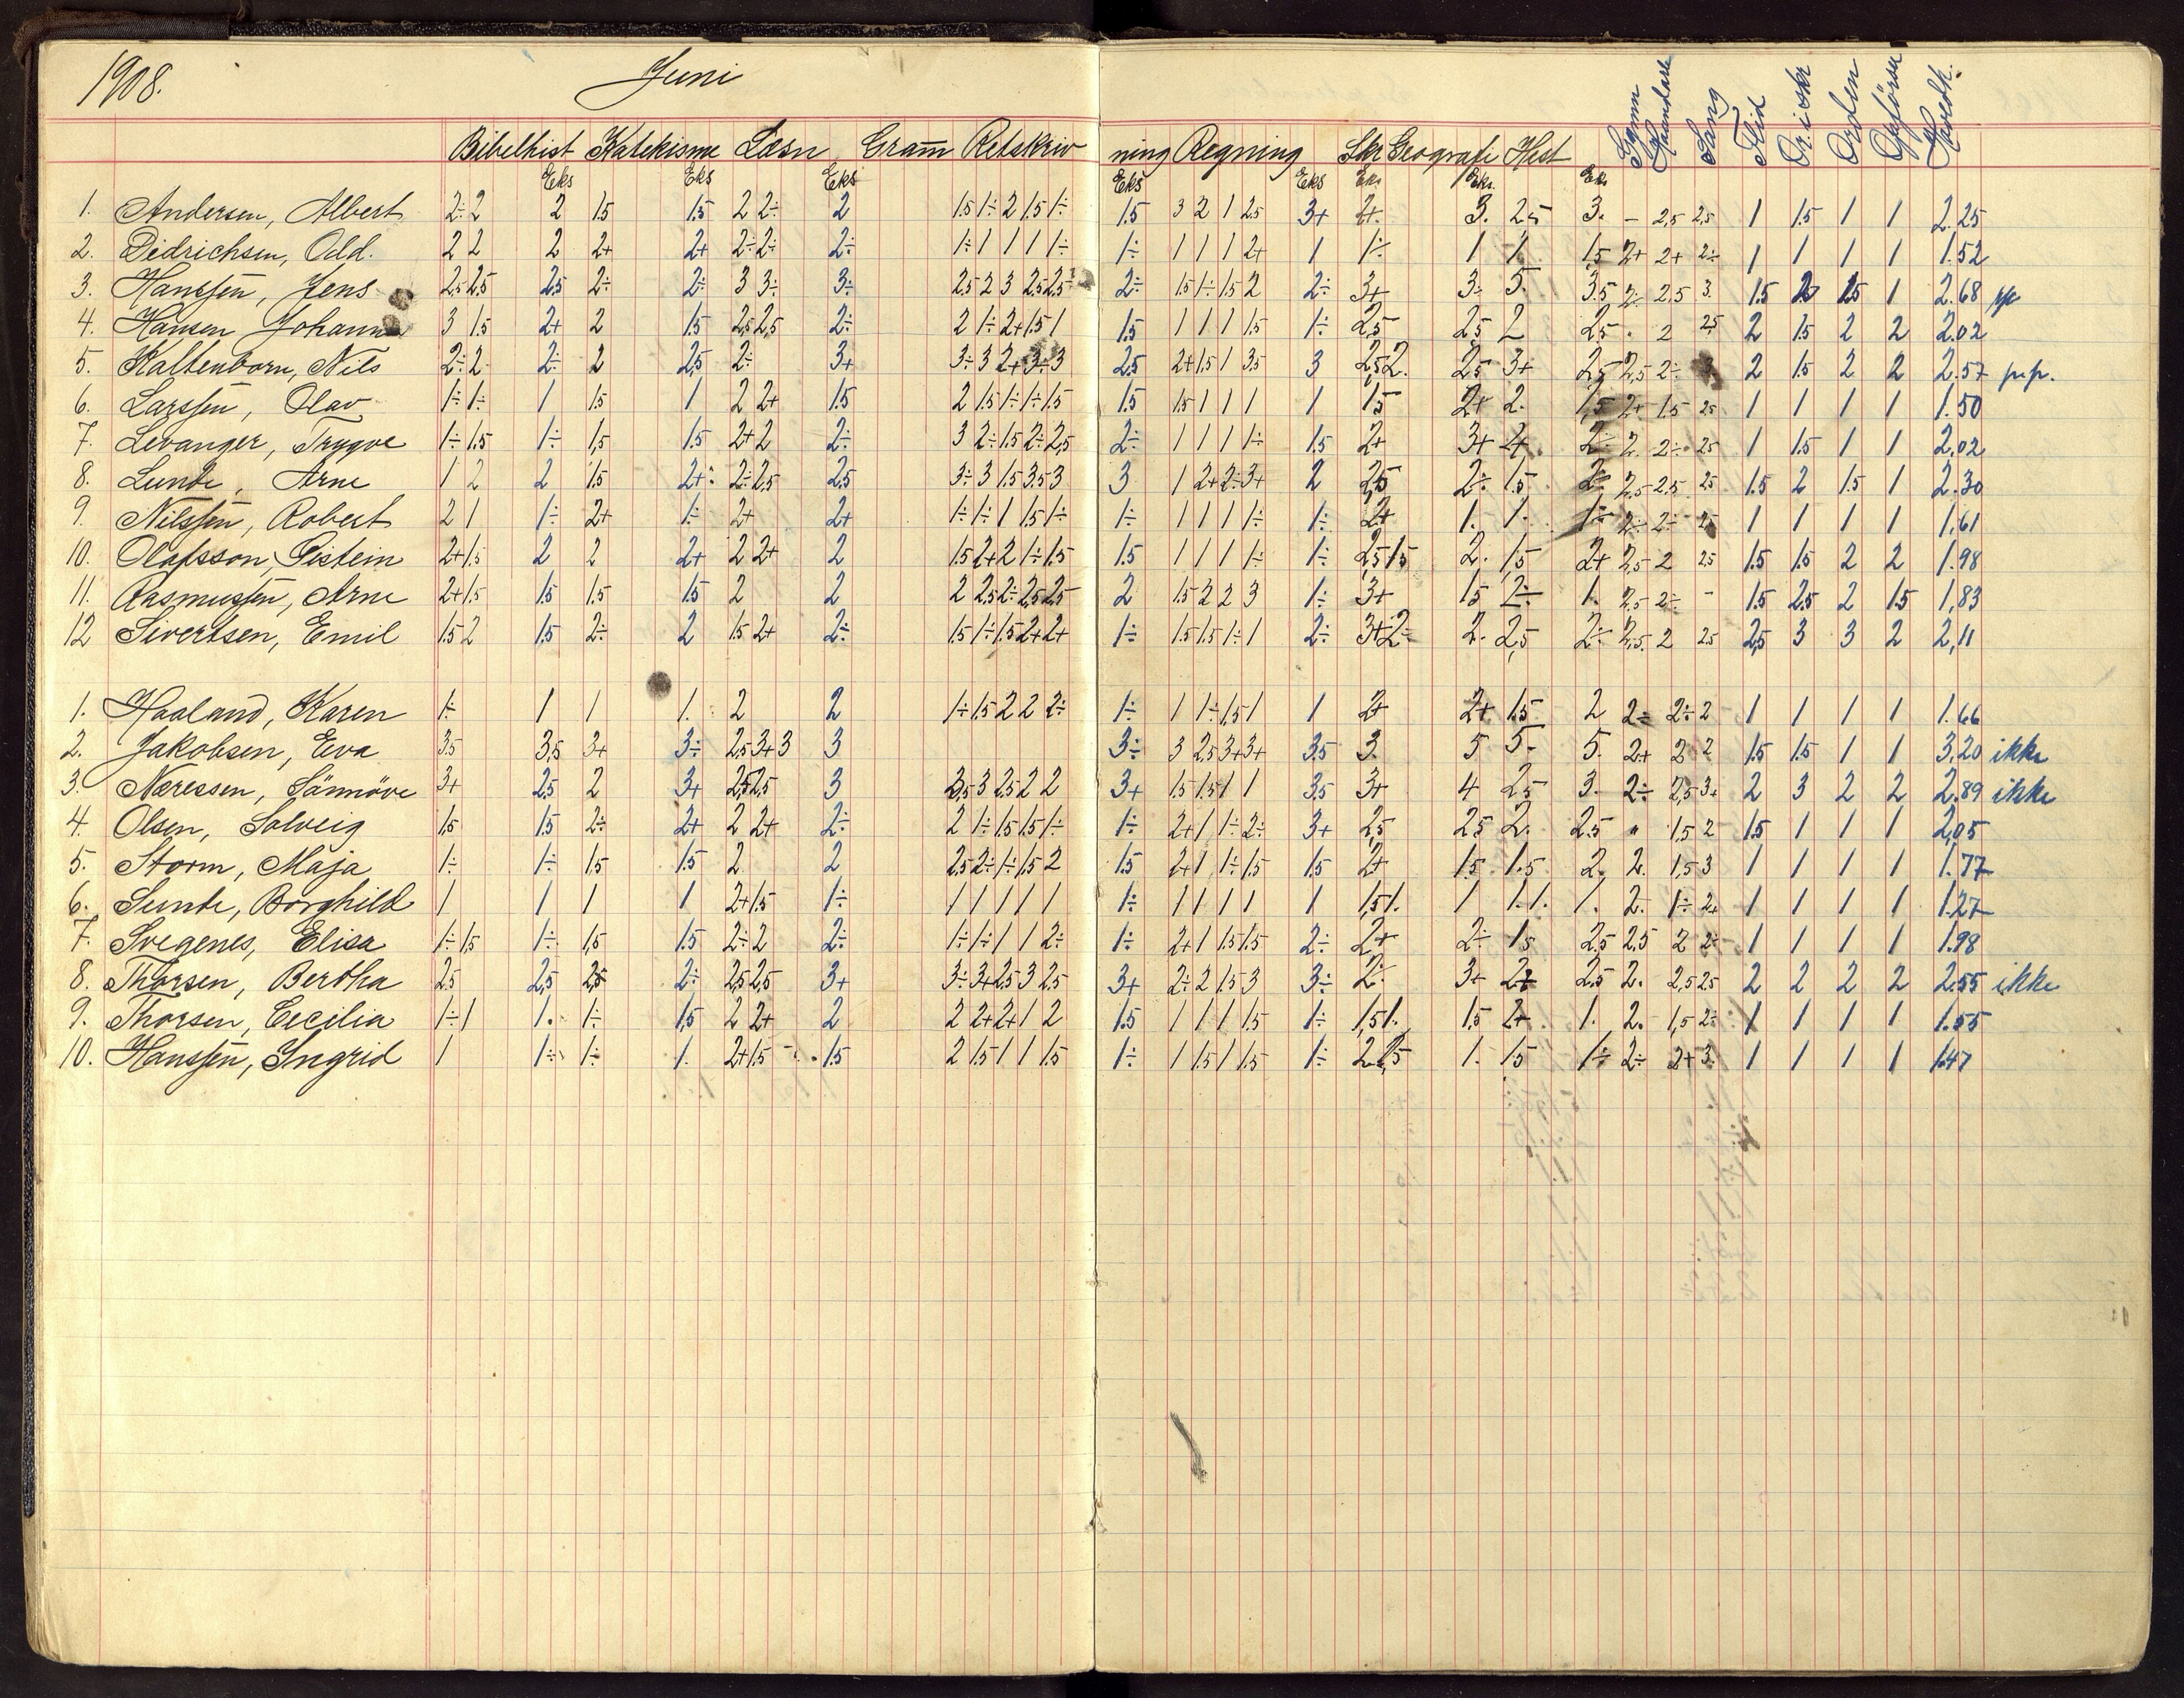 1908. Juni
Bibelhist Katekisme Læsn Gramm Retskriv ning Regning Skr Geografi Hist Gymn Haandarb Sang Flid Or i skr Orden Opførsel Hovedk.
Eks Eks Eks Eks Eks Eks. Eks. Eks
1. Andersen, Albert 2÷ 2 2 1.5 1.5 2 2÷ 2 1.5 1÷ 2 1.5 1÷ 1.5 3 2 1 2.5 3+ 2+ 3. 2.5 3. - 2.5 2.5 1 1.5 1 1 2.25
2. Didrichsen, Odd. 2 2 2 2+ 2+ 2÷ 2÷ 2÷ 1÷ 1 1 1 1÷ 1÷ 1 1 1 2+ 1 1÷ 1 1. 1.5 2+ 2+ 2÷ 1 1 1 1 1.52
3. Hanssen, Jens 2.5 2.5 2.5 2÷ 2÷ 3 3÷ 3÷ 2.5 2 3 2.5 2.5 2÷ 1.5 1÷ 1.5 2 2÷ 3+ 3. 5. 3.5 2÷ 2.5 3. 1.5 2 1.5 1 2.68 pp
4. Hansen Johannes 3 1.5 2+ 2 1.5 2.5 2.5 2÷ 2 1÷ 2+ 1.5 1 1.5 1 1 1 1.5 1÷ 2.5 2.5 2 2.5 . 2 2.5 2 1.5 2 2 2.02
5. Kaltenborn, Nils 2÷ 2 2÷ 2 2.5 2÷ 3+ 3÷ 3 2+ 3÷ 3 2.5 2+ 1.5 1 3.5 3 2.5 2. 2.5 3+ 2.5 2.5 2÷ 2 1.5 2 2 2.57 p.p.
6. Larssen, Olav 1÷ 1÷ 1 1.5 1 2 2+ 1.5 2 1.5 1÷ 1÷ 1.5 1.5 1.5 1 1 1 1 1.5 2+ 2. 1.5 2+ 1.5 2.5 1 1 1 1 1.50
7. Levanger, Trygve 1÷ 1.5 1÷ 1.5 1.5 2+ 2 2÷ 3 2÷ 1.5 2÷ 2.5 2÷ 1 1 1 1÷ 1.5 2+ 3+ 4. 2÷ 2. 2÷ 2.5 1 1.5 1 1 2.02
8. Lunde, Arne 1 2 2 1.5 2+ 2÷ 2.5 2.5 3÷ 3 1.5 3.5 3 3 1 2+ 2÷ 3+ 2 2.5 2÷ 1.5 2÷ 2.5 2.5 2.5 1.5 2 1.5 1 2.30
9. Nilssen, Robert 2 1 1÷ 2+ 1÷ 2+ 2+ 1÷ 1÷ 1 1.5 1÷ 1÷ 1 1 1 1÷ 1÷ 2+ 1. 1. 1÷ 2÷ 2÷ 2.5 1 1 1 1 1.61
10. Olafsson, Eistein 2+ 1.5 2 2 2+ 2 2+ 2 1.5 2+ 2 1÷ 1.5 1.5 1 1 1 1÷ 1÷ 2.5 1.5 2. 1.5 2+ 2.5 2 2.5 1.5 1.5 2 2 1.98
11. Rasmussen, Arne 2+ 1.5 1.5 1.5 1.5 2 2 2 2.5 2÷ 2.5 2.5 2 1.5 2 2 3 1÷ 3+ 1.5 2÷ 1. 2.5 2÷ - 1.5 2.5 2 1.5 1,83
12 Sivertsen, Emil 1.5 2 1.5 2÷ 2 1.5 2+ 2÷ 1.5 1÷ 1.5 2+ 2+ 1÷ 1.5 1.5 1÷ 1 2÷ 3+ 2÷ 2. 2,5 2÷ 2.5. 2 2.5 2,5 3 3 2 2,11
1. Haaland, Karen 1÷ 1 1 1. 2 2 1÷ 1.5 2 2 2÷ 1÷ 1 1÷ 1.5 1 1 2+ 2+ 1.5 2 2÷ 2÷ 2 1 1 1 1 1.66
2. Jakobsen, Eva 3.5 3,5 3+ 3÷ 2.5 3+ 3 3 3÷ 3 2.5 3+ 3+ 3.5 3. 5 5. 5. 2+ 2 2 1.5 1.5 1 1 3,20 ikke
3. Neressen, Sännöve 3+ 2.5 2 3+ 2.5 2.5 3 3.5 3 2.5 2 2 3+ 1.5 1.5 1 1 3.5 3+ 4 2.5 3. 2÷ 2,5 3+ 2 3 2 2 2.89 ikke
4. Olsen, Solveig 1.5 1.5 2÷ 2+ 2 2+ 2÷ 2 1÷ 1.5 1.5 1÷ 1÷ 2+ 1 1÷ 2÷ 3+ 2.5 2.5 2. 2.5 " 1,5 2 1.5 1 1 1 2,05
5. Storm, Maja 1÷ 1÷ 1.5 1.5 2 2 2.5 2÷ 1÷ 1.5 2 1.5 2+ 1 1÷ 1.5 1.5 2+ 1.5 1.5 2. 2. 1,5 3 1 1 1 1 1.77
6. Sunde, Borghild 1 1 1 1 2+ 1.5 1÷ 1 1 1 1 1 1÷ 1 1 1 1 1 1,5 1. 1 1. 1. 1. 2. 1÷ 2+ 1 1 1 1 1.27
7. Svegenes, Elisa 1÷ 1,5 1÷ 1,5 1.5 2÷ 2 2÷ 1÷ 1÷ 1 1 2÷ 1÷ 2+ 1 1.5 1.5 2÷ 2+ 2÷ 1.5 2.5 2.5 2 2÷ 1 1 1 1 1.98
8. Thorsen, Bertha 2.5 2,5 2,5 2÷ 2.5 2.5 3+ 3÷ 3+ 2.5 3 2.5 3+ 2÷ 2 1.5 3 3÷ 2÷ 3+ 2+ 2.5 2. 2,5 2.5 2 2 2 2 2.55 ikke
9. Thorsen, Cecilia 1÷ 1 1. 1÷ 1,5 2 2+ 2 2 2+ 2+ 1 2 1.5 1 1 1 1.5 1÷ 1,5 1. 1.5 2+ 1. 2. 1,5 2÷ 1 1 1 1 1.55
10. Hanssen, Ingrid 1 1÷ 1÷ 1. 2+ 1.5 1.5 2 1.5 1 1 1.5 1÷ 1 1.5 1 1.5 1÷ 2. 2,5 1. 1.5 1÷ 2÷ 2+ 3. 1 1 1 1 1.47